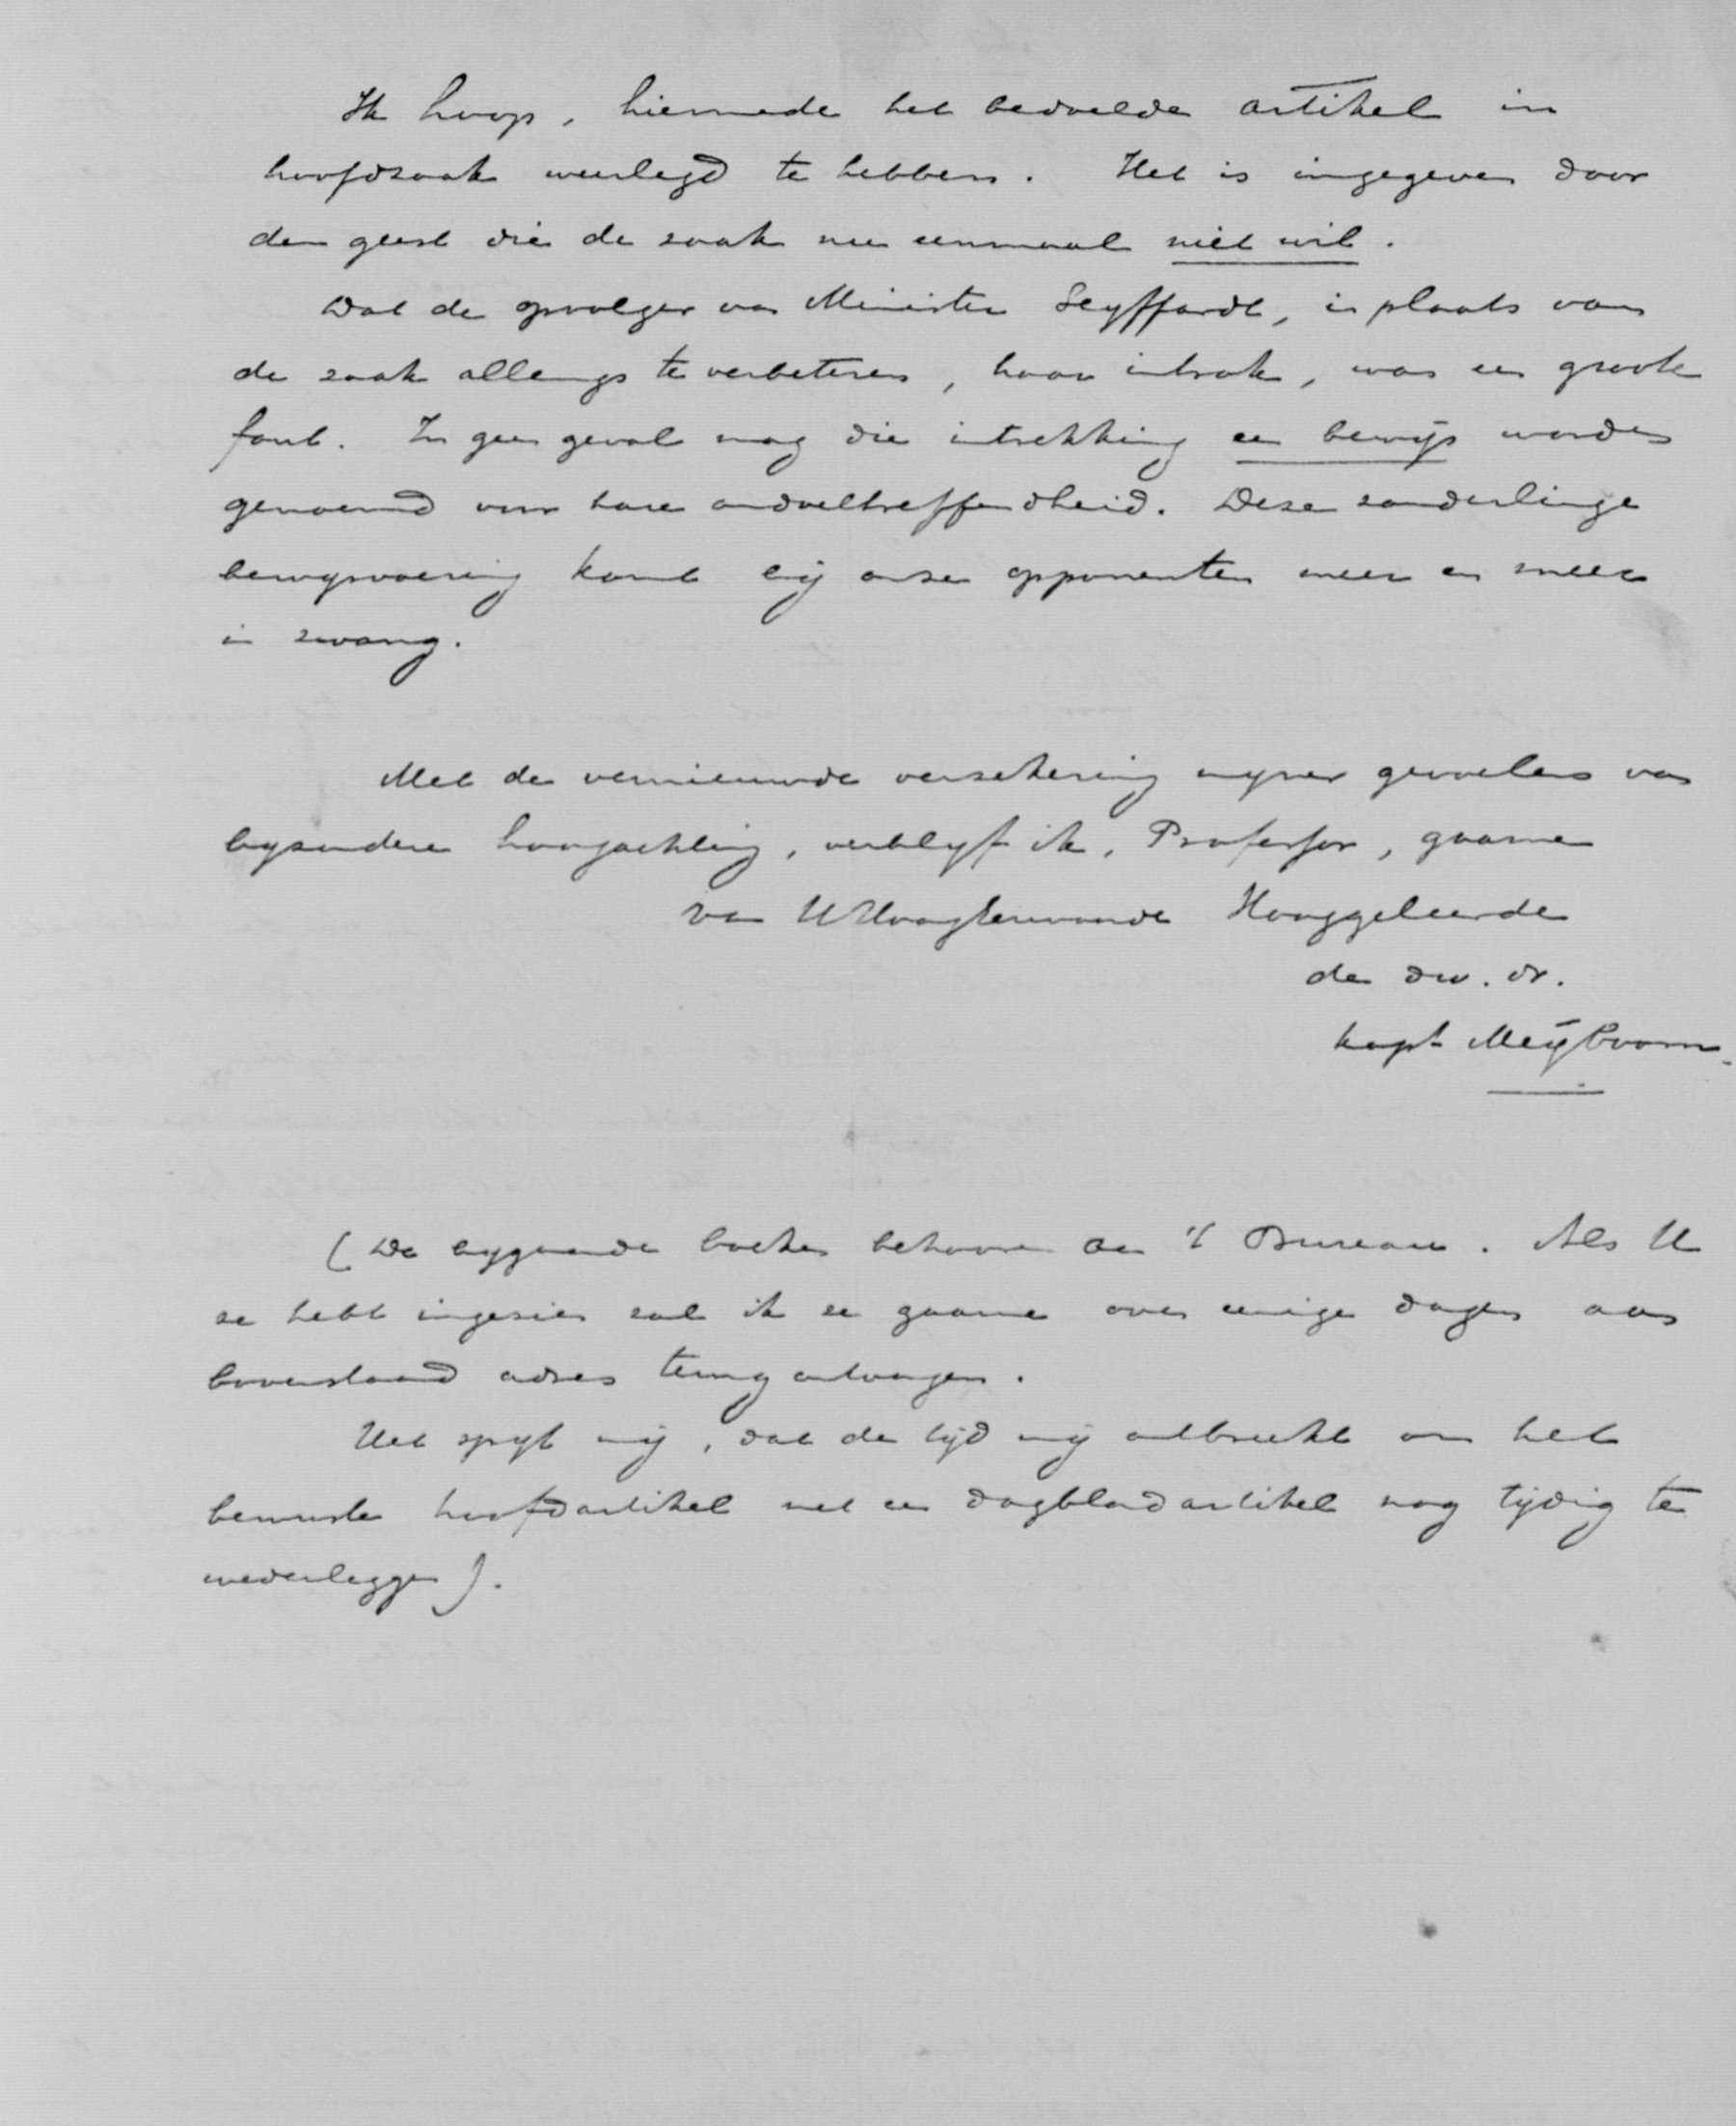 Ik hoop, hiermede het bedoelde artikel in
hoofdzaak weerlegd te hebben. Het is ingegeven door
den geest die de zaak nu eenmaal niet wil.
Dat de opvolger van Minister Seyffardt, in plaats van
de zaak allengs te verbeteren, haar introk, was een groote
fout. In geen geval mag die intrekking een bewijs worden
genoemd voor hare ondoeltreffendheid. Deze zonderlinge
bewijsvoering komt bij onze opponenten meer en meer
in zwang.
Met de vernieuwde verzekering mijner gevoelens van
bijzondere hoogachting, verblijf ik, Professor, gaarne
van UHoogleerwaarde Hooggeleerde
de dw. dr.
kapt Meÿboom.
(De bijgaande boeken behooren aan 't Bureau. Als U
ze hebt ingezien zal ik ze gaarne over eenige dagen aan
bovenstaand adres terug ontvangen.
Het spijt mij, dat de tijd mij ontbreekt om het
bewuste hoofdartikel met een dagbladartikel nog tijdig te
wederleggen).